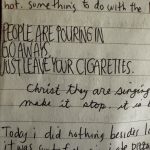 hot. something to do with the
PEOPLE ARE POURING IN
GO AWAYS.
JUST LEAVE YOUR CIGARETTES.
Christ they are singing
make it stop. it is
Today i did nothing besides
it was